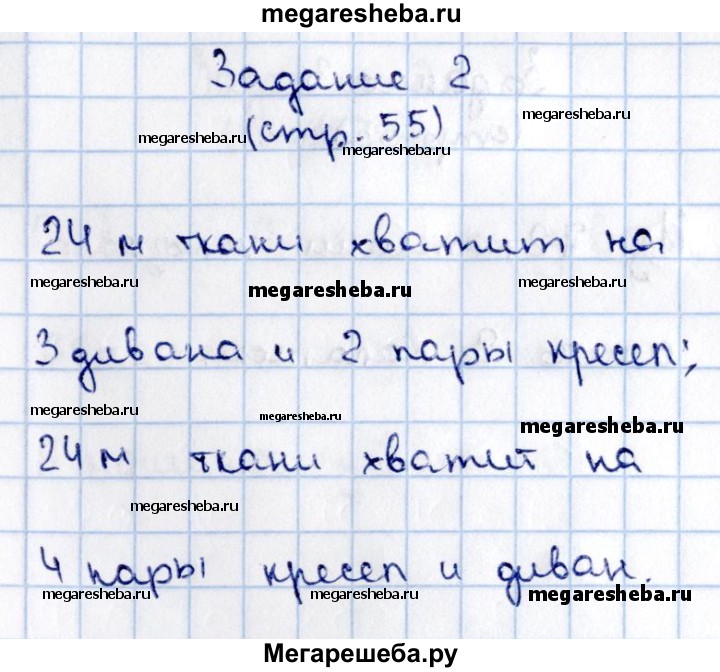 megaresheba.ru
Задание 2
megaresheba.ru
(стр. 55)
megaresheba.ru
megaresheba.ru
24 м ткани хватит на
megaresheba.ru
megaresheba.ru
megaresheba.ru
3 дивана и 2 пары кресел;
megaresheba.ru
megaresheba.ru
megaresheba.ru
24 м ткани хватит на
megaresheba.ru
megaresheba.ru
4 пары кресел и диван.
megaresheba.ru
megaresheba.ru
megaresheba.ru
Мегарешеба.ру